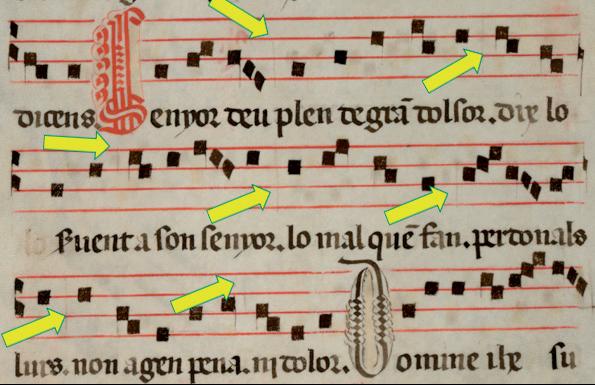 dicens Senyor deu plen de grā dolsor. dix lo
Suent a son senyor. lo mal que̅ fan. perdonals
lurs. non agen pena. ni dolor. Domine ihe su